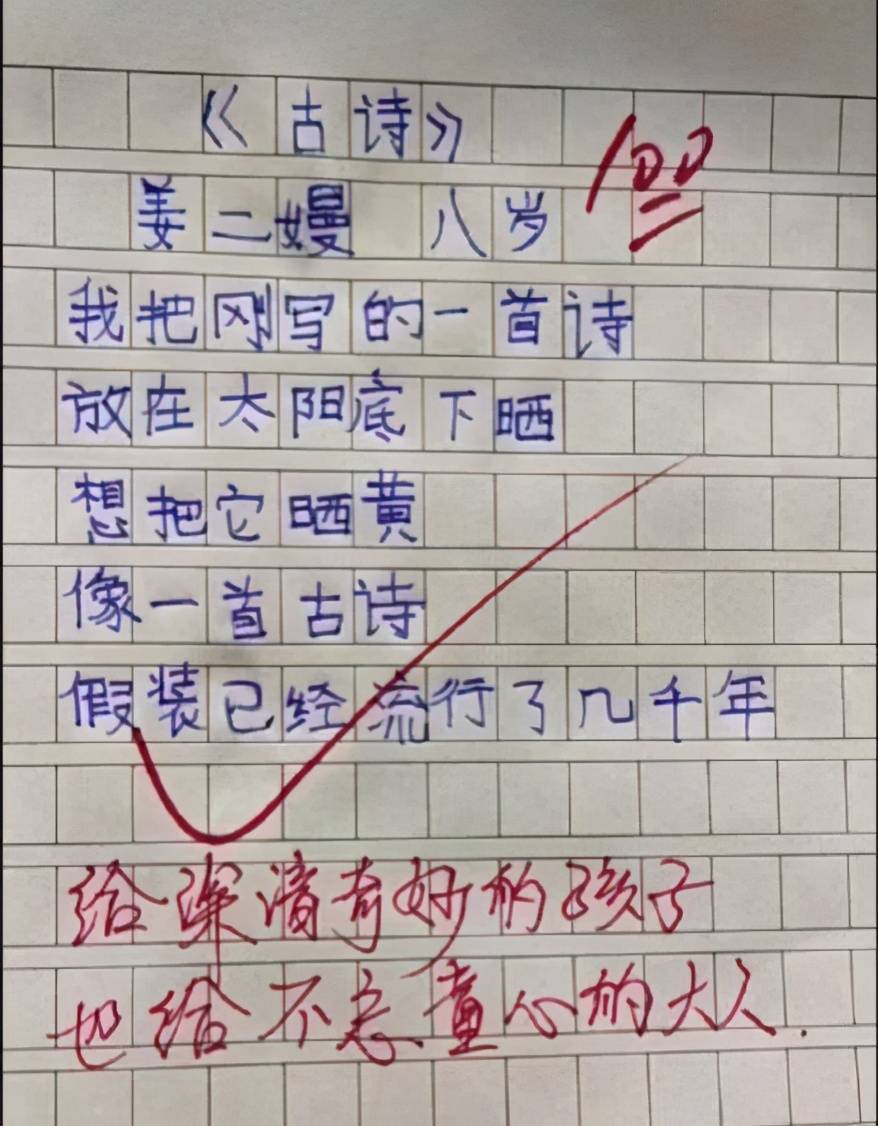 《古诗》
100
姜二嫚 八岁
我把刚写的一首诗
放在太阳底下晒
想把它晒黄
像一首古诗
假装已经流行了几千年
给深清奇妙的孩子
也给不忘童心的大人.